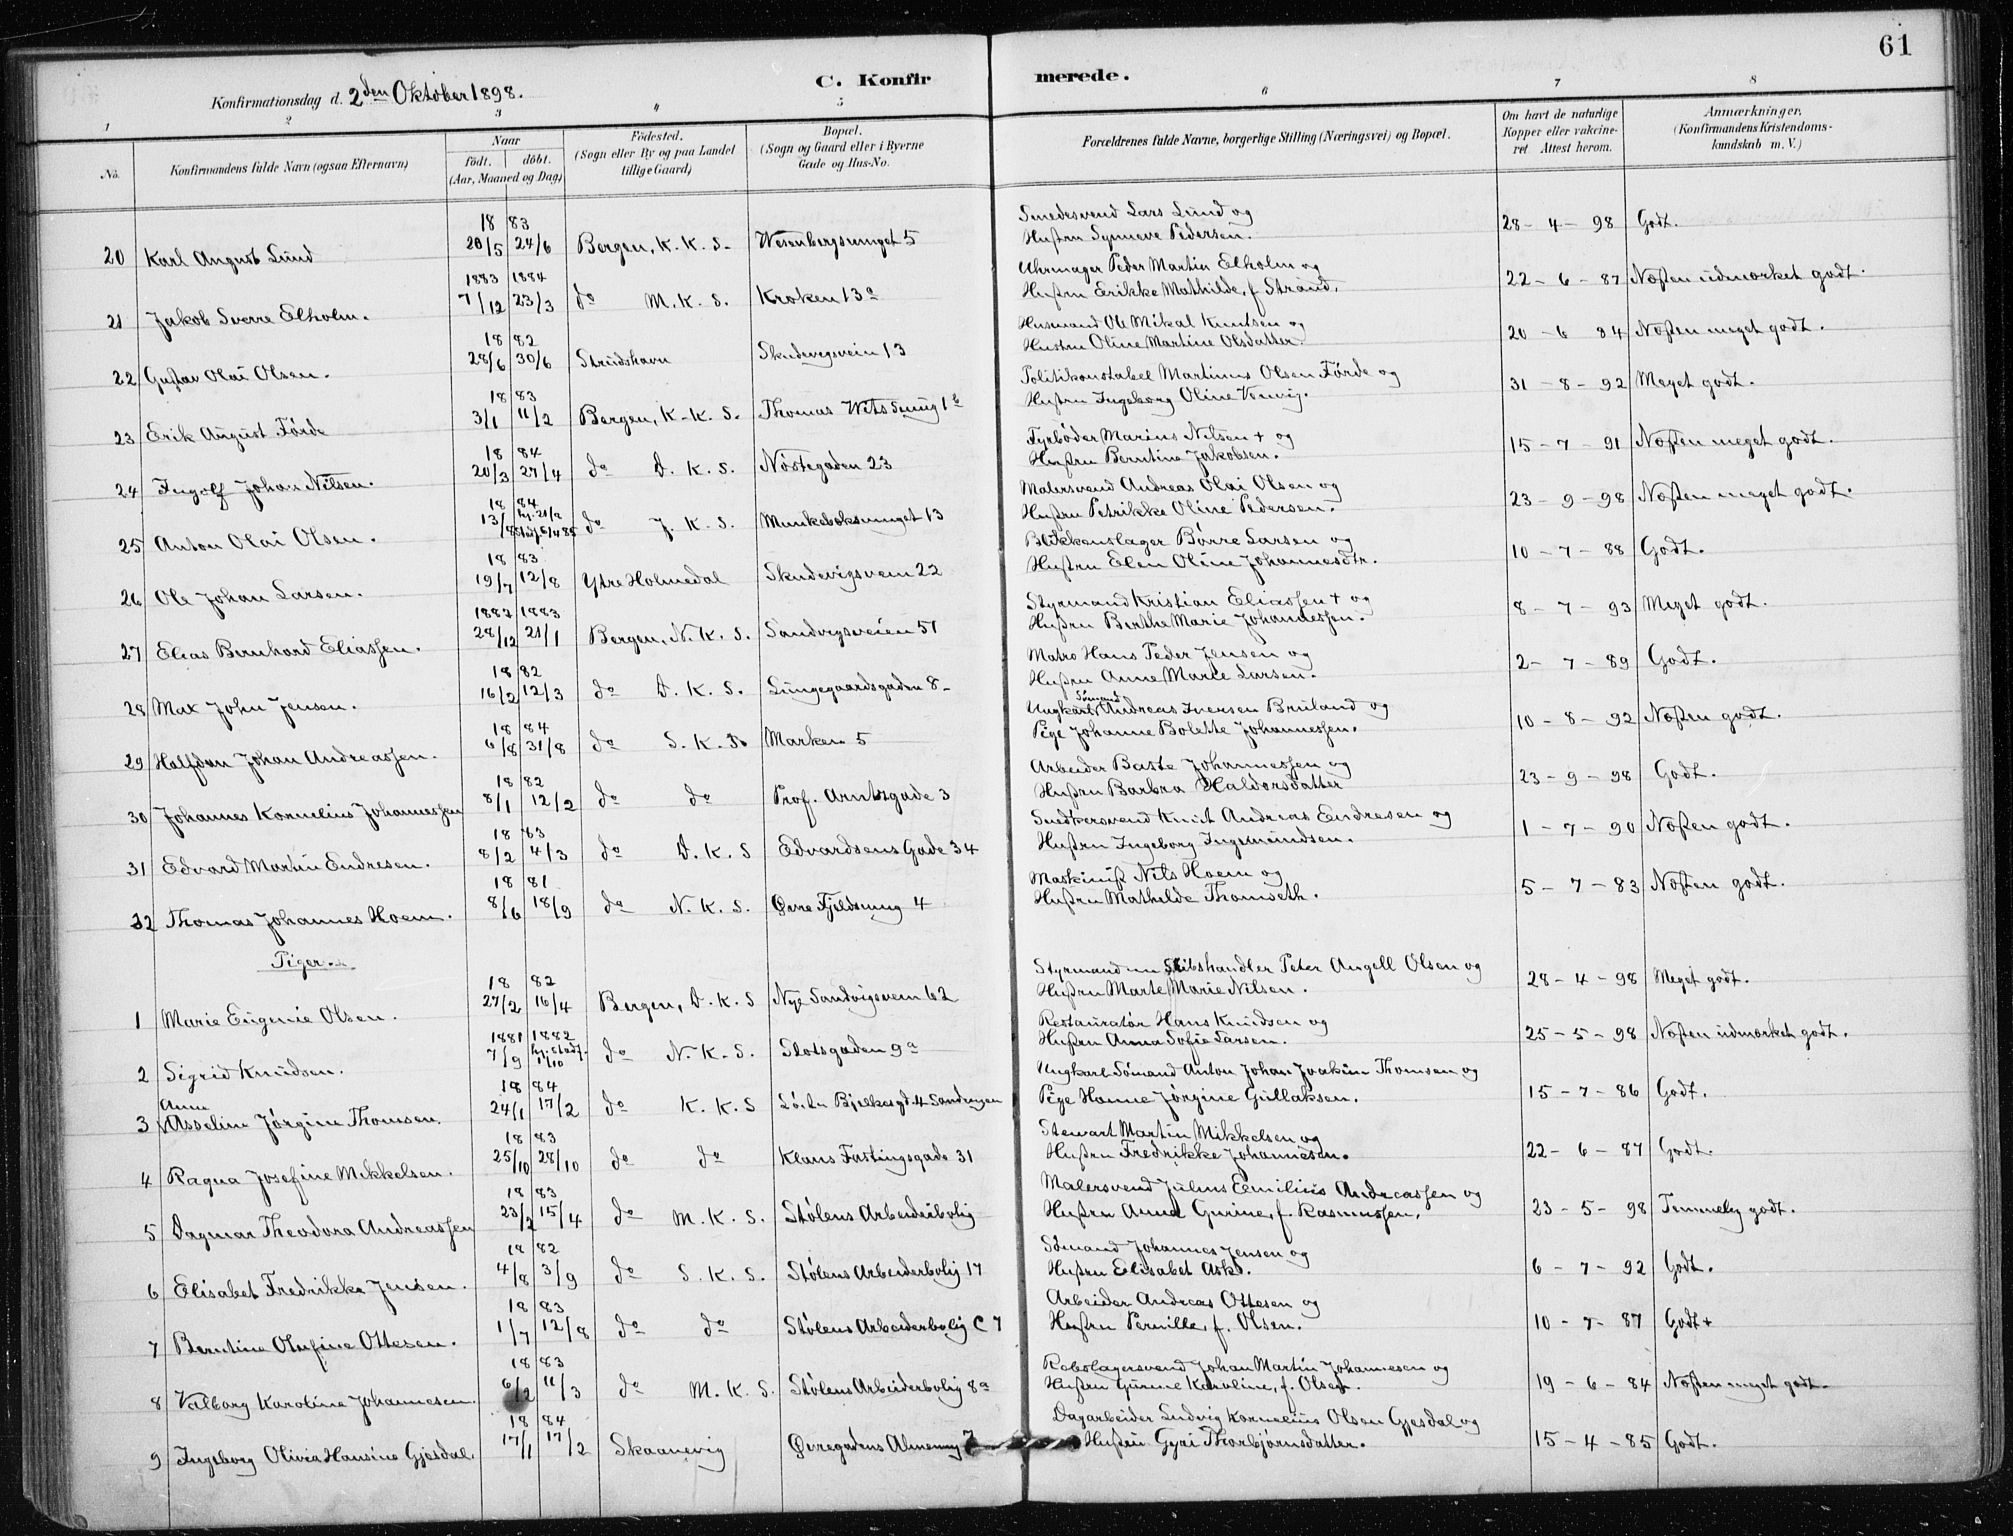 61
C. Konfirmerede.
Konfirmationsdag d. 2den Oktober 1898.
1 2 3 4 5 6 7 8
No. Konfirmandens fulde Navn (ogsaa Efternavn) Naar födt. döbt. (Aar, Maaned og Dag) Födested. (Sogn eller By og paa Landet tillige Gaard) Bopæl. (Sogn og Gaard eller i Byerne Gade og Hus-No. Forældrenes fulde Navne, borgerlige Stilling (Næringsvei) og Bopæl. Om havt de naturlige Kopper eller vakcineret Attest herom. Anmærkninger, (Konfirmandens Kristendomskundskab m. V.)
20 Karl August Lund 1883 20/5 24/6 Bergen, K. K. S. Wesenbergsmuget 5 Smedesvend Lars Lund og Hustru Synneve Pedersen. 28-4-98 Godt.
21 Jakob Sverre Elholm. 1883 7/12 1884 23/3 do M. K. S. Kroken 13a Uhrmager Peder Martin Elholm og Hustru Erikke Mathilde, f. Strand. 22-6-87 Næsten udmærket godt.
22 Gustav Olai Olsen. 1882 28/6 30/6 Strudshavn Skudevigsvein 13 Husmand Ole Mikal Knutsen og Hustru Oline Martine Olsdatter. 20-6 84 Næsten meget godt.
23 Erik August Förde 1883 3/1 11/2 Bergen, K. K. S. Thomas Wits Smug 1b Politikonstabel Martinus Olsen Förde og Hustru Ingeborg Oline 31-8-92 Meget godt.
24 Ingolf Johan Nilsen. 1884 20/3 27/4 do D. K. S. Nöstegaden 23 Fyrböder Marius Nilsen + og Hustru Berntine Jakobsen. 15-7-91 Næsten meget godt.
25 Anton Olai Olsen. 1884 do J. K. S. Munkeboksmuget 13 Malersvend Andreas Olai Olsen og Hustru Petrikke Oline Pedersen. 23-9-98 Næsten meget godt.
26 Ole Johan Larsen. 1883 19/7 12/8 Ytre Holmedal Skudevigsvein 22 Blikkenslager Børre Larsen og Hustru Elen Oline Johannesdtr. 10-7-88 Godt.
27 Elias Bernhard Eliassen. 1882 28/12 1883 21/1 Bergen, N. K. S. Sandvigsveien 51 Styrmand Kristian Eliassen + og Hustru Berthe Marie Johannessen. 8-7-93 Meget godt.
28 Max John Jensen. 1882 16/2 12/3 do D. K. S. Lungegaardsgaden 8 Matro Hans Peder Jensen og Hustru Anne Marie Larsen. 2-7-89 Godt.
29 Halfdan Johan Andreassen. 1884 6/8 31/8 do S. K. S. Marken 5 Ungkarl Sömand Andreas Iversen Bruland og Pige Johanne Bolette Johannessen. 10-8-92 Næsten godt.
30 Johannes Kornelius Johannessen 1882 8/1 12/2 do do Prof. Arntzgade 3 Arbeider Baste Johannessen og Hustru Barbra Haldorsdatter 23-9-98 Godt.
31 Edvard Martin Endresen. 1883 8/2 4/3 do D. K. S Edvardsens Gade 34 Snedkersvend Knut Andreas Endresen og Hustru Ingeborg Ingemundsen. 1-7-90 Næsten godt.
32 Thomas Johannes Hoem. 1881 8/6 18/9 do N. K. S. Øvre Fjeldsmug 4 Maskinist Nils Hoem og Hustru Mathilde Thomseth. 5-7-83 Næsten godt.
Piger.
1 Marie Eugenie Olsen. 1882 27/2 16/4 Bergen, D. K. S Nye Sandvigsvein 62 Styrmand nu Skibshandler Peter Angell Olsen og Hustru Marte Marie Nilsen. 28-4-98 Meget godt.
2 Sigrid Knudsen. 1881 7/9 1882 1/10 do N. K. S. Slotsgaden 9a Restauratör Hans Knudsen og Hustru Anna Sofie Larsen. 25-5-98 Næsten udmærket godt.
3 Anne Asseline Jörgine Thomsen. 1884 24/1 17/2 do K. K. S Bjelkesgd. 4 Sandvigen Ungkarl Sömand Anton Johan Joakim Thomsen og Pige Hanne Jörgine Gullaksen. 15-7-86 Godt.
4 Ragna Josefine Mikkelsen. 1883 25/10 28/10 do do Klaus Fastingsgade 31 Stewart Martin Mikkelsen og Hustru Fredrikke Johannesen. 22-6-87 Godt.
5 Dagmar Theodora Andreassen 1883 23/2 15/4 do M. K. S. Stølens Arbeiderbolig Malersvend Julius Emilius Andreassen og Hustru Anna Gurine, f. Rasmussen. 23-5-98 Temmelig godt.
6 Elisabet Fredrikke Jensen. 1882 4/8 3/9 do S. K. S. Stølens Arbeiderbolig 17 Sömand Johannes Jensen og Hustru Elisabet Ask. 6-7-92 Godt.
7 Berntine Olufine Ottesen. 1883 1/7 12/8 do do Stølens Arbeiderbolig C 7 Arbeider Andreas Ottesen og Hustru Pernille, f. Olsen. 10-7-87 Godt
8 Valborg Karoline Johannesen. 1883 6/2 11/3 do M. K. S. Stølens Arbeiderbolig 8a Rebslagersvend Johan Martin Johannesen og Hustru Gurine Karoline, f. Olsen. 19-6-84 Næsten meget godt.
9 Ingeborg Olivia Hansine Gjesdal. 1884 17/1 17/2 Skaanevig Øvregadens Almenning 7 Dagarbeider Ludvig Kornelius Olsen Gjesdal og Hustru Gyri Thorbjørnsdatter. 15-4-85 Godt.